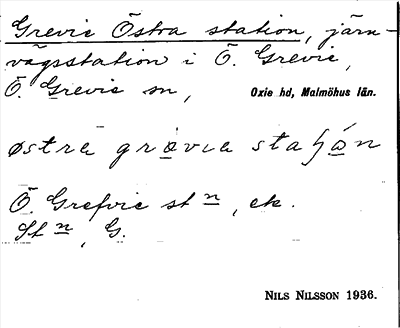 Grevie Östra station, järn-
vägsstation i Ö. Grevie,
Ö. Grevie sn, Oxie hd, Malmöhus län.
østrɐ grøvıɐ staꞎón
Ö. Grefvie stn, ek.
Stn, G.
NILS NILSSON 1936.